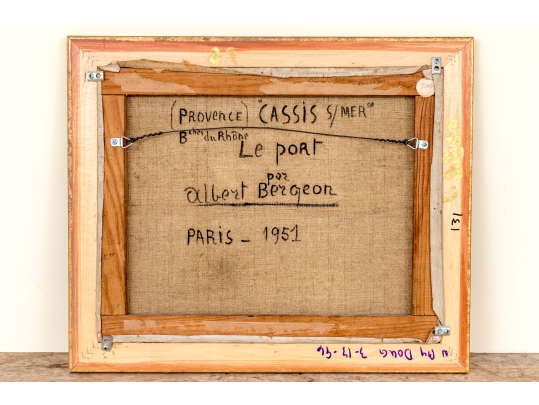 (PROVENCE) "CASSIS S/MER"
Bches du Rhône
Le port
par
albert Bergeon
PARIS - 1951
131
Doug 3-17-96